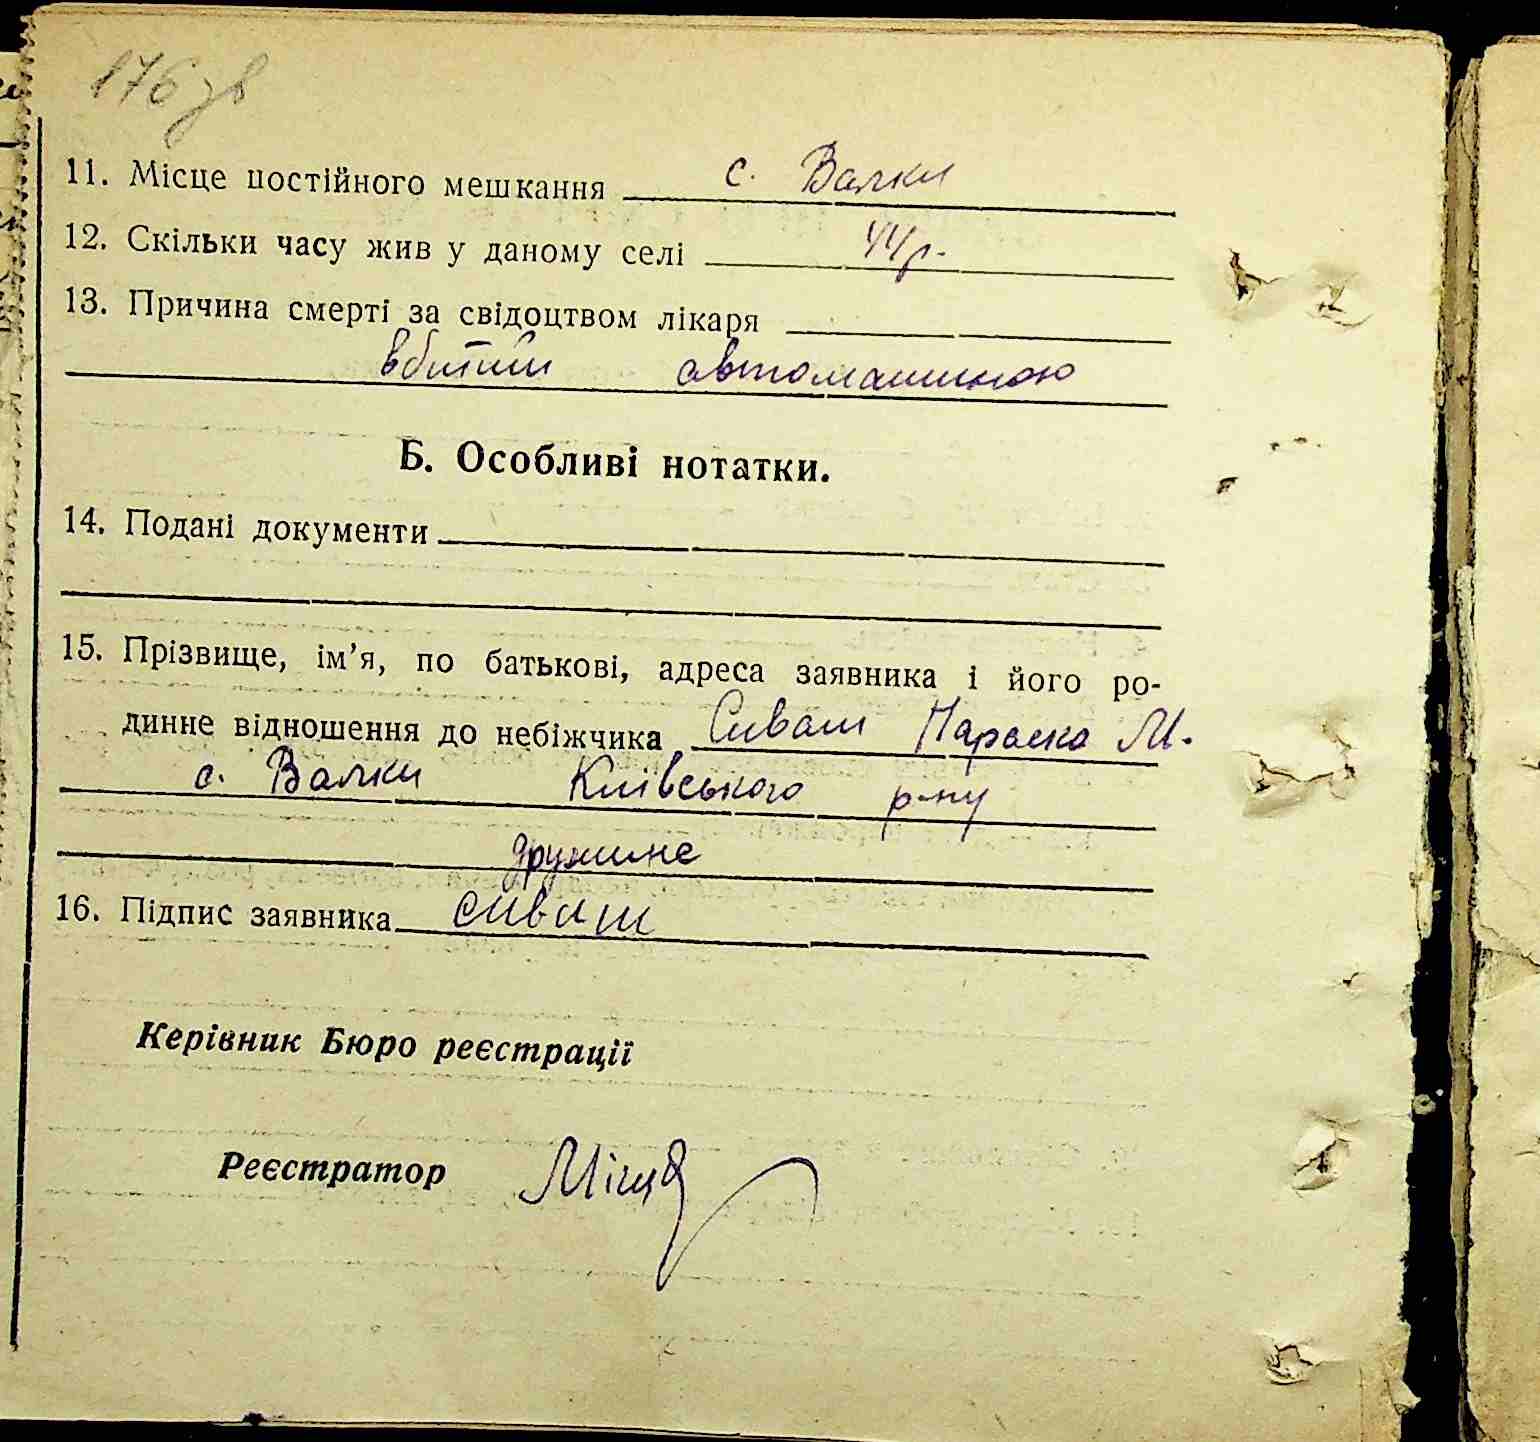 176 зв
11. Місце постійного мешкання с. Валки
12. Скільки часу жив у даному селі 44р.
13. Причина смерті за свідоцтвом лікаря
вбитий автомашиною
Б. Особливі нотатки.
14. Подані документи
15. Прізвище, ім’я, по батькові, адреса заявника і його ро-
динне відношення до небіжчика Сиваш Параска М.
с. Валки Київського р-ну
дружина
16. Підпис заявника сиваш
Керівник Бюро реєстрації
Реєстратор